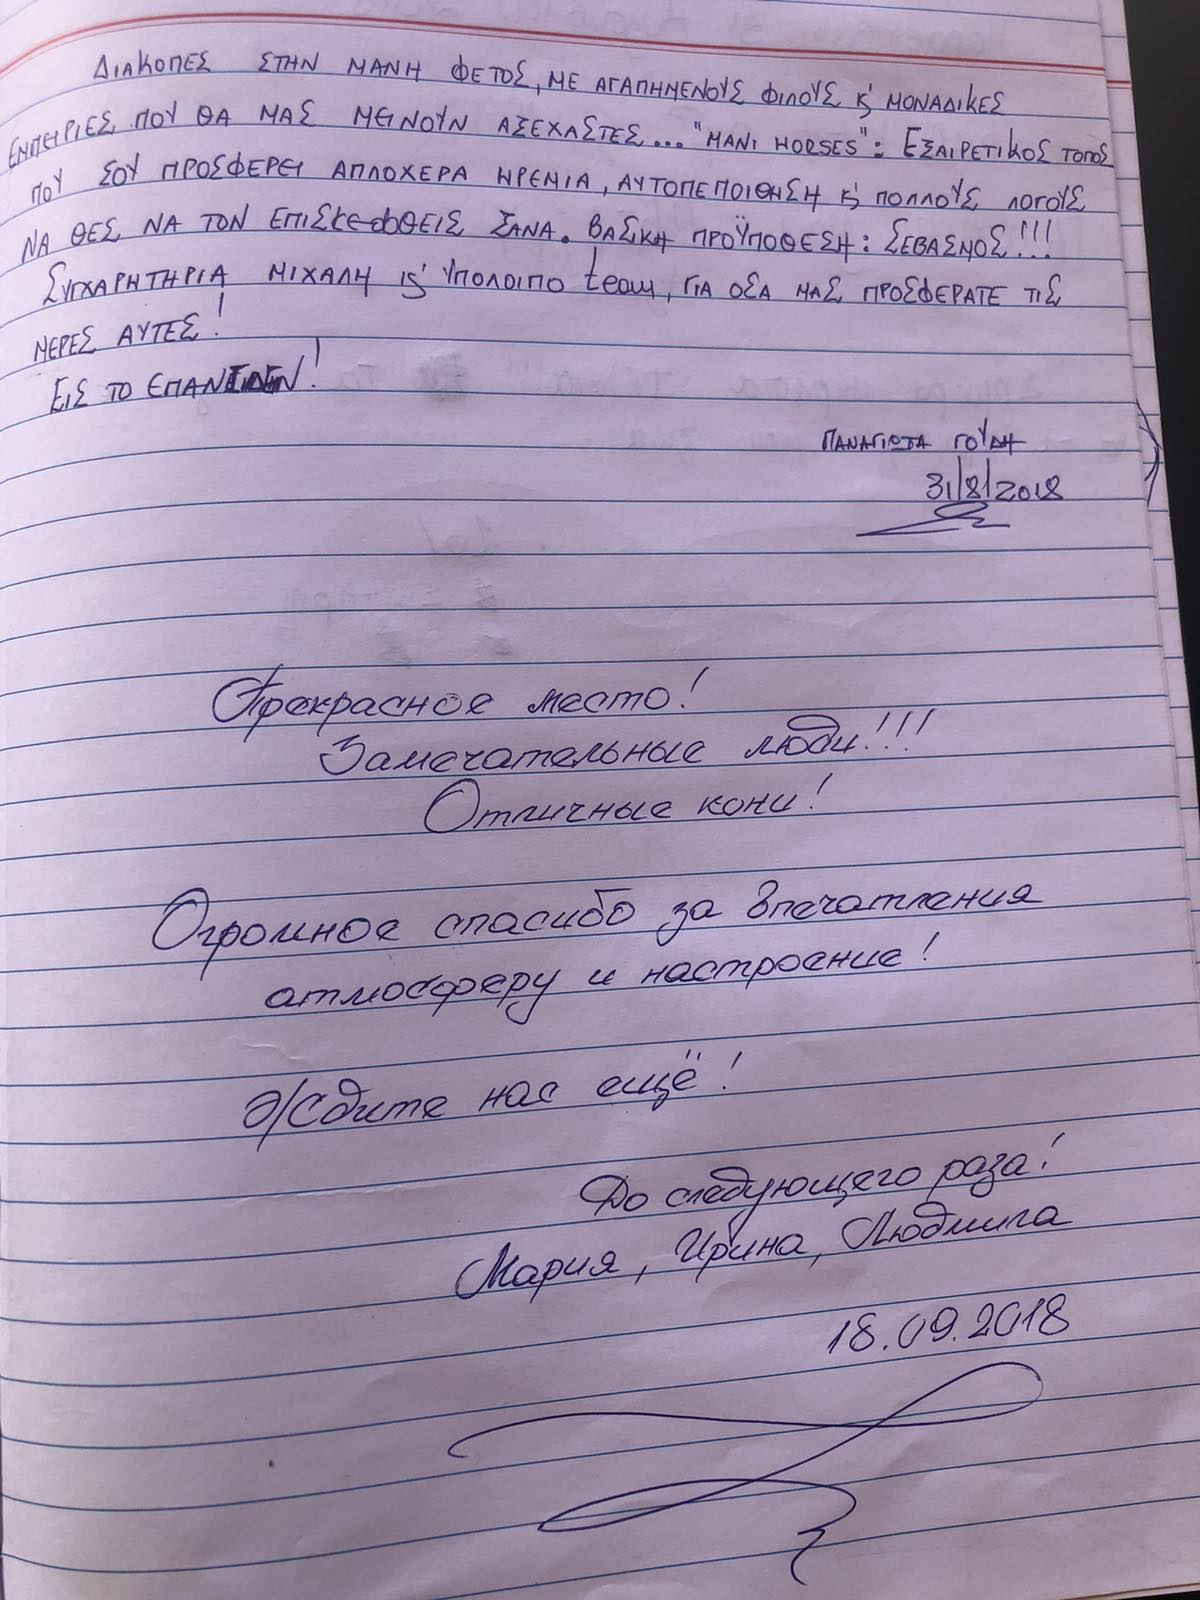 ΔΙΑΚΟΠΕΣ ΣΤΗΝ ΜΑΝΗ ΦΕΤΟΣ, ΜΕ ΑΓΑΠΗΜΕΝΟΥΣ ΦΙΛΟΥΣ κ' ΜΟΝΑΔΙΚΕΣ
ΕΜΠΕΙΡΙΕΣ ΠΟΥ ΘΑ ΜΑΣ ΜΕΙΝΟΥΝ ΑΞΕΧΑΣΤΕΣ... "MANI HORSES": ΕΞΑΙΡΕΤΙΚΟΣ ΤΟΠΟΣ
ΠΟΥ ΣΟΥ ΠΡΟΣΦΕΡΕΙ ΑΠΛΟΧΕΡΑ ΗΡΕΜΙΑ, ΑΥΤΟΠΕΠΟΙΘΗΣΗ κ' ΠΟΛΛΟΥΣ ΛΟΓΟΥΣ
ΝΑ ΘΕΣ ΝΑ ΤΟΝ ΕΠΙΣΚΕΦΘΕΙΣ ΞΑΝΑ. ΒΑΣΙΚΗ ΠΡΟΫΠΟΘΕΣΗ: ΣΕΒΑΣΜΟΣ!!!
ΣΥΓΧΑΡΗΤΗΡΙΑ ΜΙΧΑΛΗ κ' ΥΠΟΛΟΙΠΟ team, ΓΙΑ ΟΣΑ ΜΑΣ ΠΡΟΣΦΕΡΑΤΕ ΤΙΣ
ΜΕΡΕΣ ΑΥΤΕΣ!
ΕΙΣ ΤΟ ΕΠΑΝΙΔΕΙΝ!
ΠΑΝΑΓΙΩΤΑ ΓΟΥΔΗ
31/8/2018
Прекрасное место!
Замечательные люди!!!
Отличные кони!
Огромное спасибо за впечатления
атмосферу и настроение!
Ждите нас ещё!
До следующего раза!
Мария, Ирина, Людмила
18.09.2018